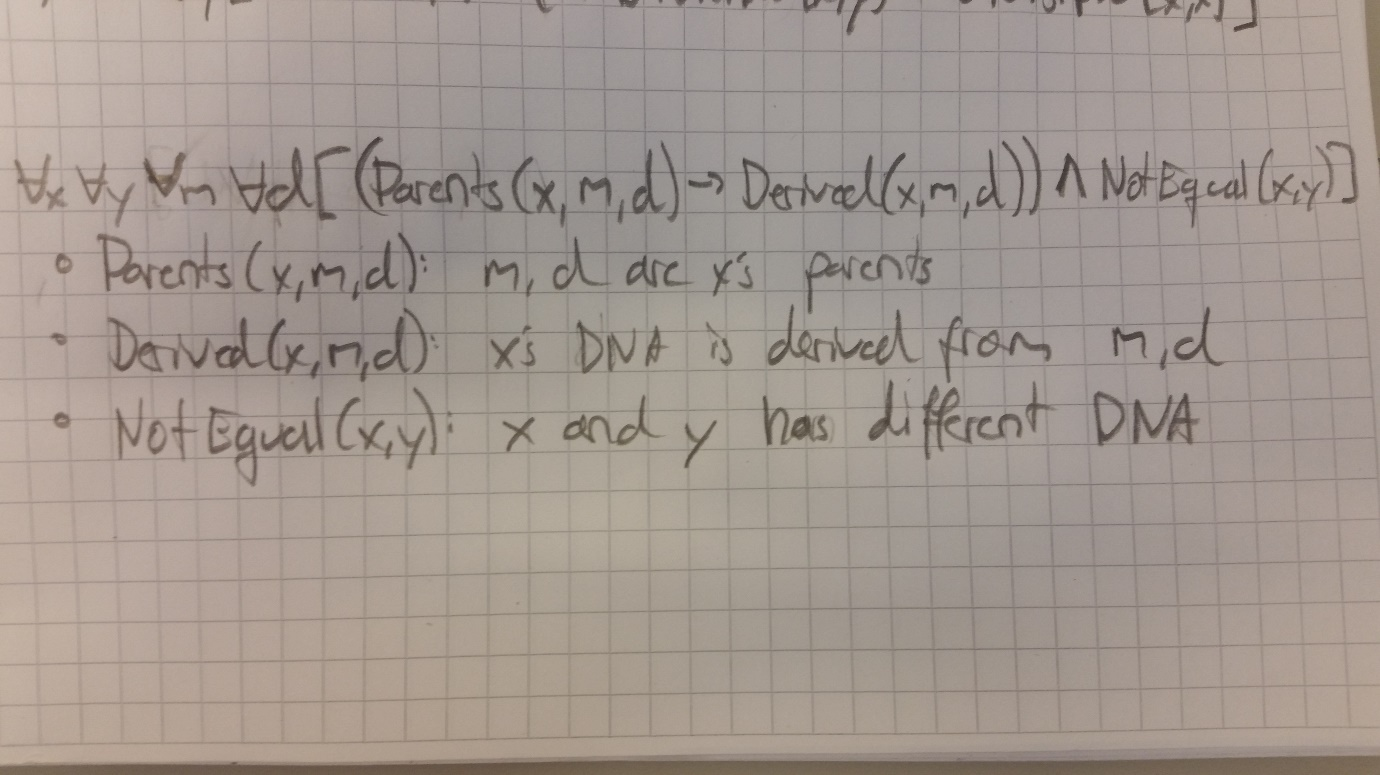 [x,x]]
∀x ∀y ∀m ∀d[(Parents(x,m,d)→Derived(x,m,d))∧NotEqual(x,y)]
• Parents(x,m,d): m,d are x's parents
• Derived(x,m,d): x's DNA is derived from m,d
• NotEqual(x,y): x and y has different DNA